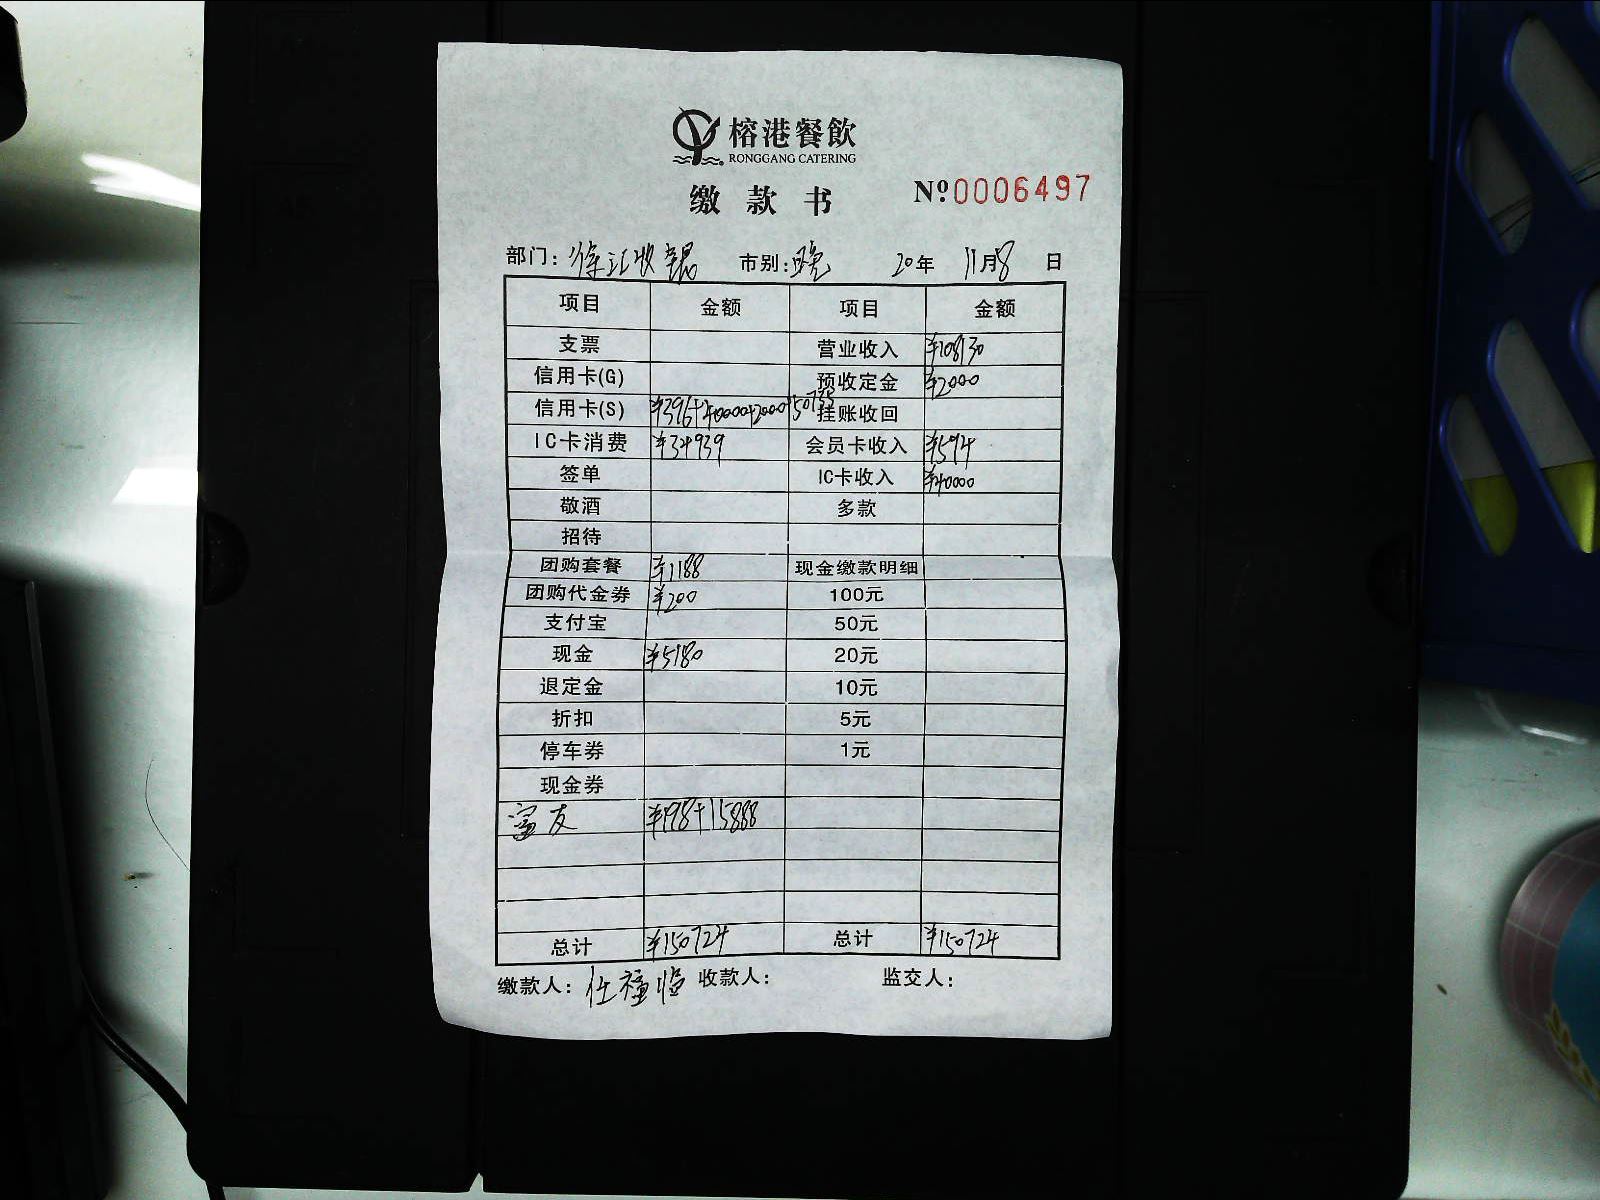 榕港餐飲
RONGGANG CATERING
缴款书 Nº0006497
部门：徐汇收银 市别：晚 20年 11月8日
项目 金额 项目 金额
支票 营业收入 ¥108130
信用卡(G) 预收定金 ¥2000
信用卡(S) ¥396+40000+2000+50735 挂账收回
IC卡消费 ¥34939 会员卡收入 ¥594
签单 IC卡收入 ¥40000
敬酒 多款
招待
团购套餐 ¥1188 现金缴款明细
团购代金券 ¥200 100元
支付宝 50元
现金 ¥5180 20元
退定金 10元
折扣 5元
停车券 1元
现金券
富友 ¥198+15888
总计 ¥150724 总计 ¥150724
缴款人： 收款人： 监交人：